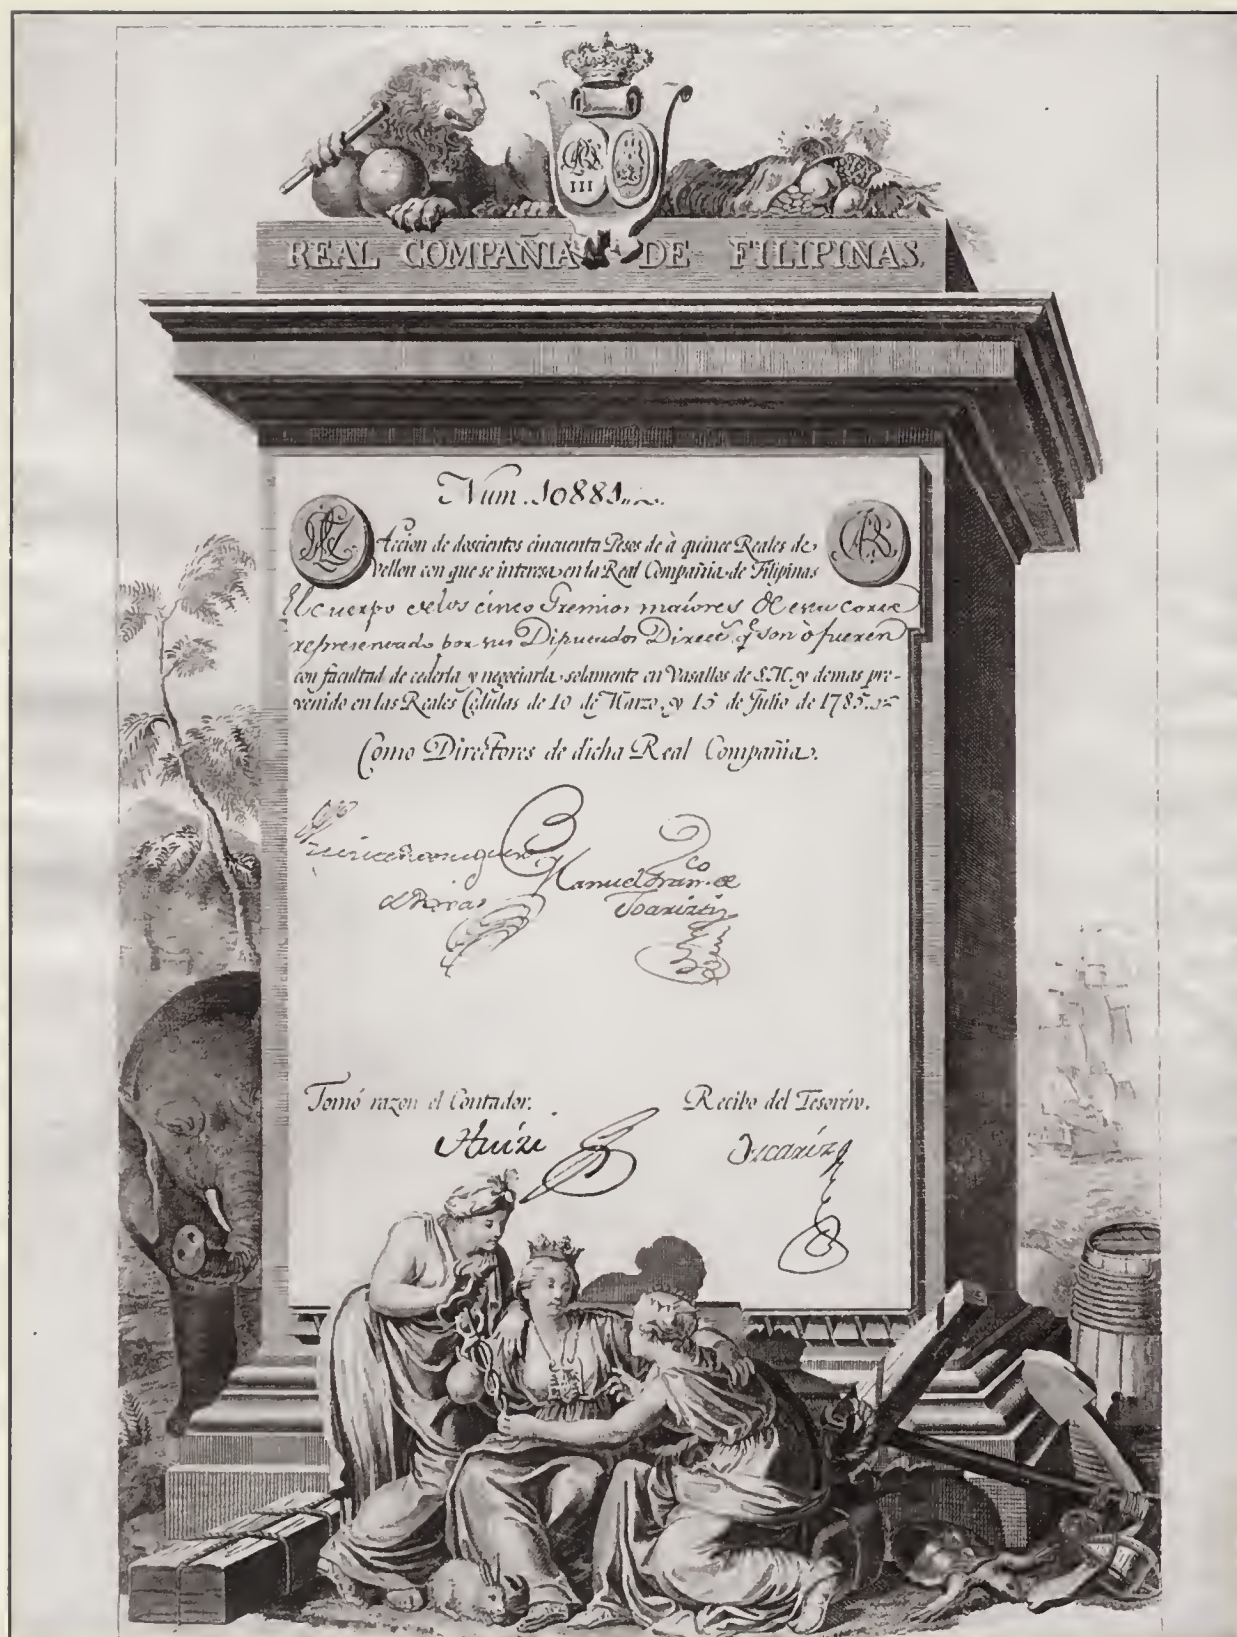 III
REAL COMPAÑIA DE FILIPINAS.
Num. 10881
Accion de doscientos cincuenta Pesos de à quince Reales de
Vellon con que se interesa en la Real Compañia de Filipinas
El cuerpo de los cinco Gremios maiores de esta corte
representado por sus Diputados Direct.s q.e son ò fueren
con facultad de cederla y negociarla solamente en Vasallos de S.M. y demas pre-
venido en las Reales Cedulas de 10 de Marzo, y 15 de Julio de 1785.
Como Directores de dicha Real Compañia.
de Rivas
Manuel Fran.co de
Joarizti
Tomó razon el Contador.
Recibo del Tesorero.